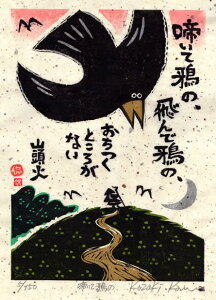 啼いて鴉の、
飛んで鴉の、
おちつく
ところが
ない
山頭火
啼いて鴉の
Kozaki Kan